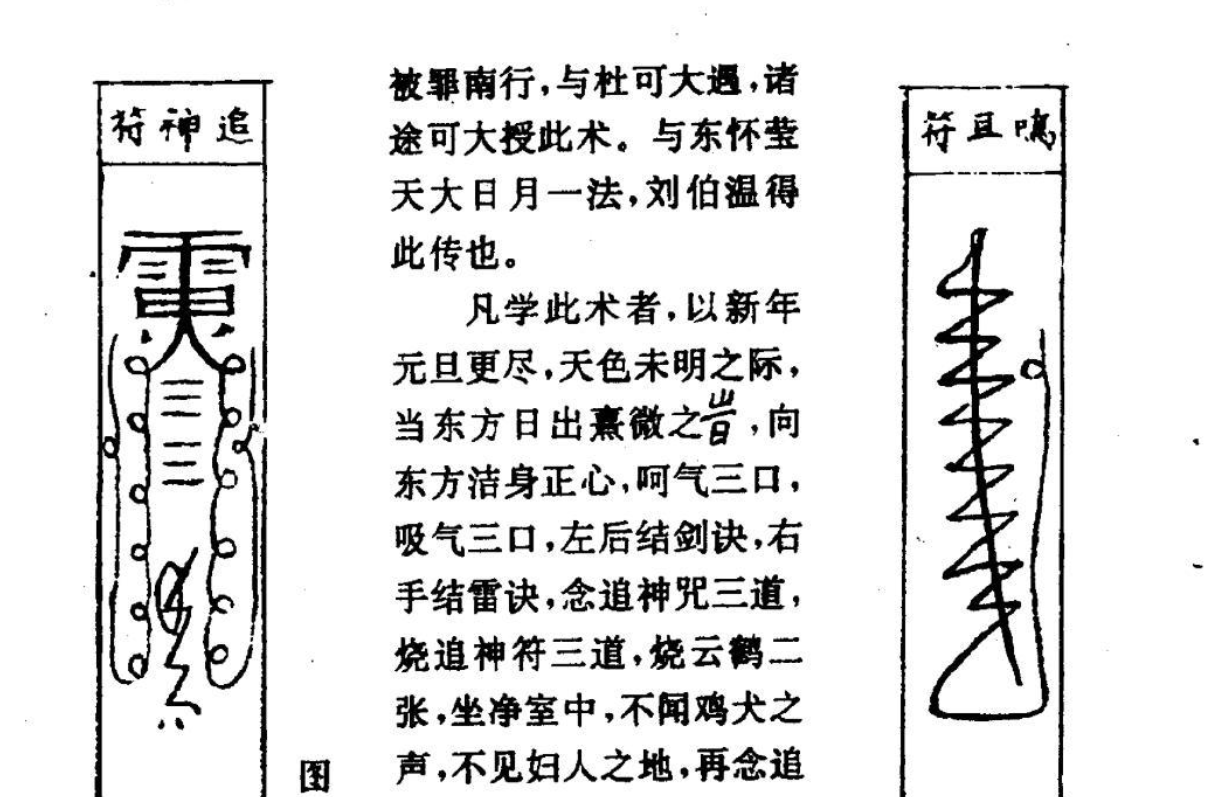 追神符
被罪南行，与杜可大遇，诸
途可大授此术。与东怀莹
天大日月一法，刘伯温得
此传也。
凡学此术者，以新年
元旦更尽，天色未明之际，
当东方日出熹微之旹，向
东方洁身正心，呵气三口，
吸气三口，左后结剑诀，右
手结雷诀，念追神咒三道，
烧追神符三道，烧云鹤二
张，坐净室中，不闻鸡犬之
声，不见妇人之地，再念追
图
符